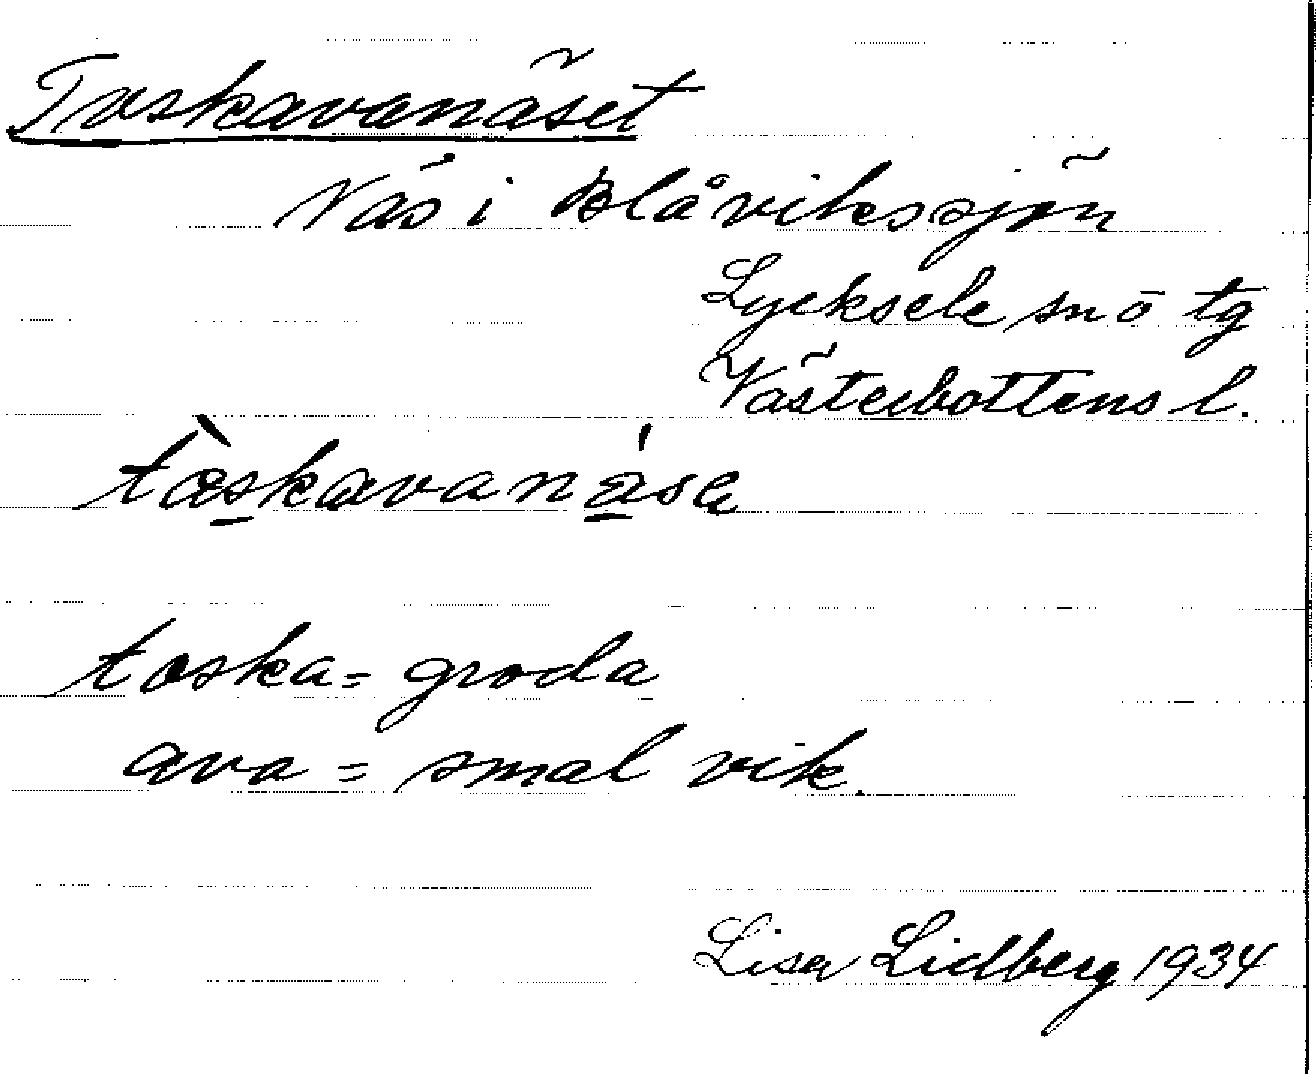 Toskavanäset
Näs i Blåvikssjön
Lycksele sn o tg
Västerbottens l.
tòskavanása
toska = groda
ava = smal vik.
Lisa Lidberg 1934